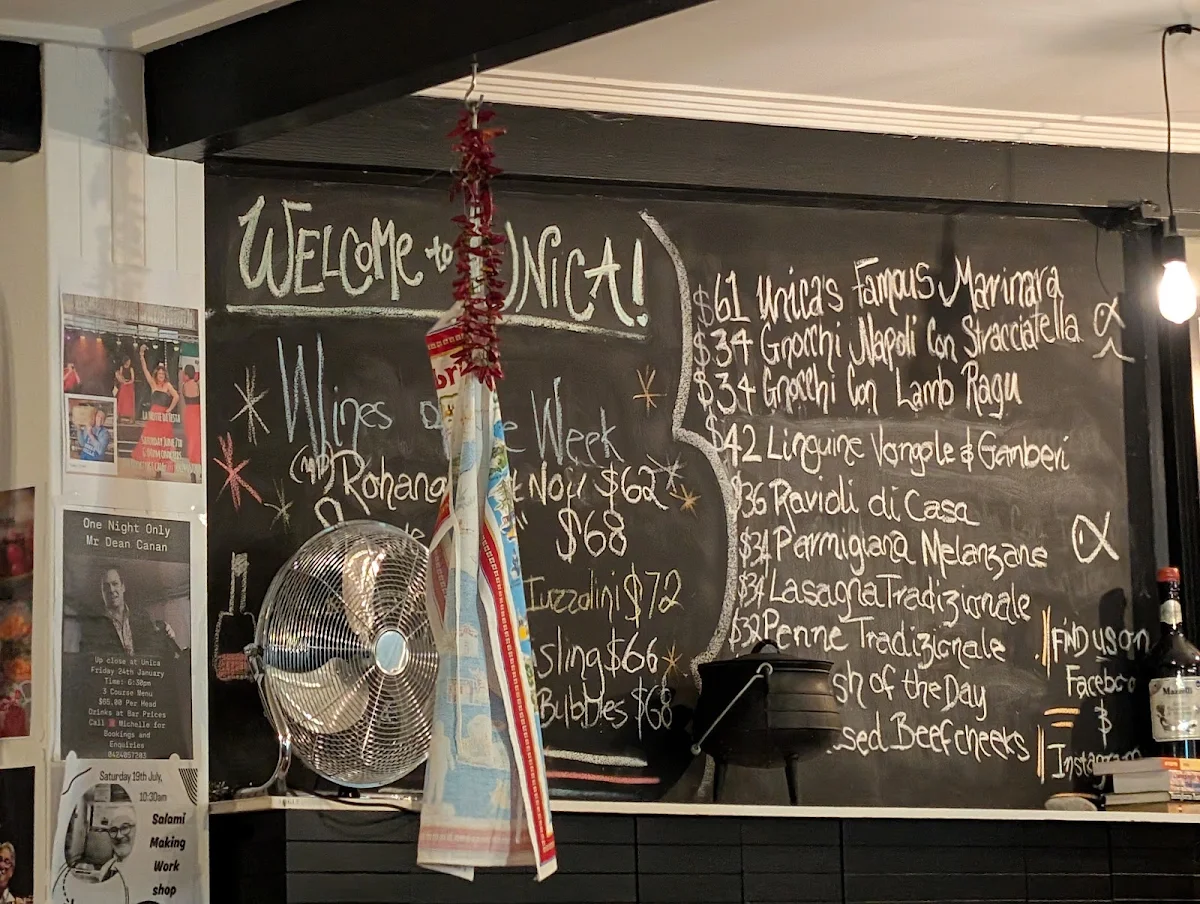 WELCOME to UNICA!
Wines Week
Rohana Noir $62
$68
Tuzzolini $72
sling $66
Bubbles $68
$61 Unica's Famous Marinara
$34 Gnocchi Napoli Con Stracciatella
$34 Gnocchi Con Lamb Ragu
$42 Linguine Vongole & Gamberi
$36 Ravioli di Casa
$34 Parmigiana Melanzane
$34 Lasagna Tradizionale
$32 Penne Tradizionale
sh of the Day
sed Beefcheeks
FIND US ON
Facebo
$
Instagram
LA NOTTE DI FESTA
SATURDAY JUNE 7TH
One Night Only
Mr Dean Canan
Up close at Unica
Friday 24th January
Time: 6:30pm
3 Course Menu
$65.00 Per Head
Drinks at Bar Prices
Call Michelle for
Bookings and
Enquiries
0424057203
Saturday 19th July,
10:30am
Salami
Making
Work
shop